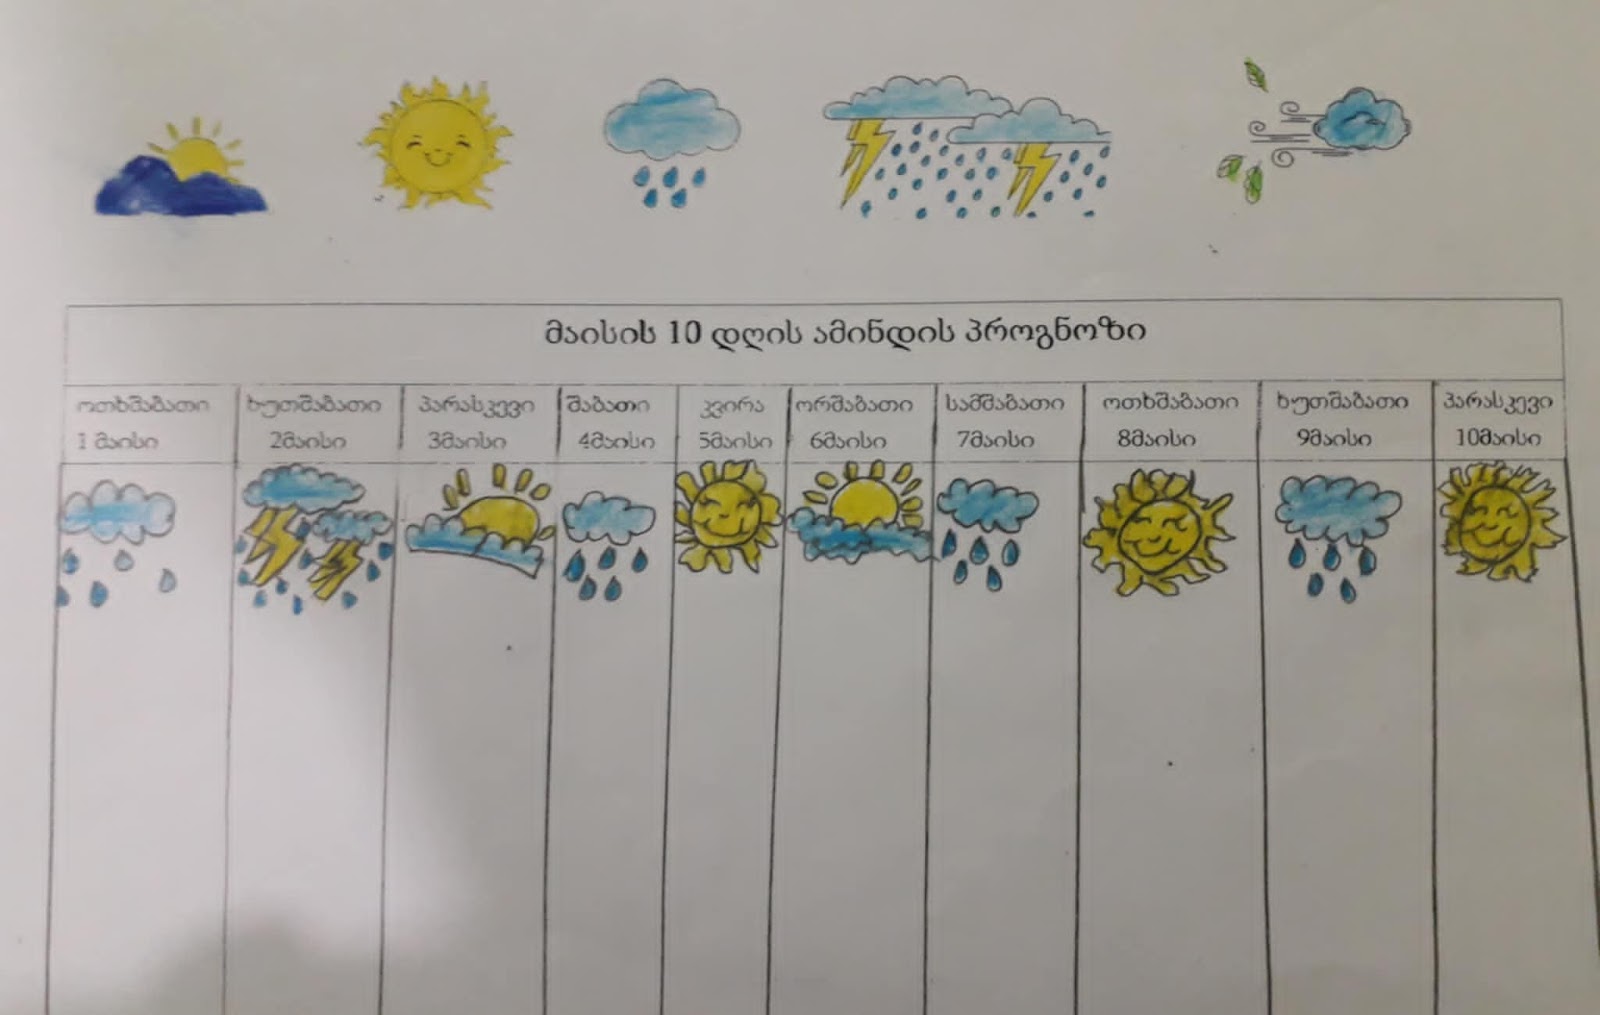 მაისის 10 დღის ამინდის პროგნოზი
ოთხშაბათი ხუთშაბათი პარასკევი შაბათი კვირა ორშაბათი სამშაბათი ოთხშაბათი ხუთშაბათი პარასკევი
1 მაისი 2მაისი 3მაისი 4მაისი 5მაისი 6მაისი 7მაისი 8მაისი 9მაისი 10მაისი